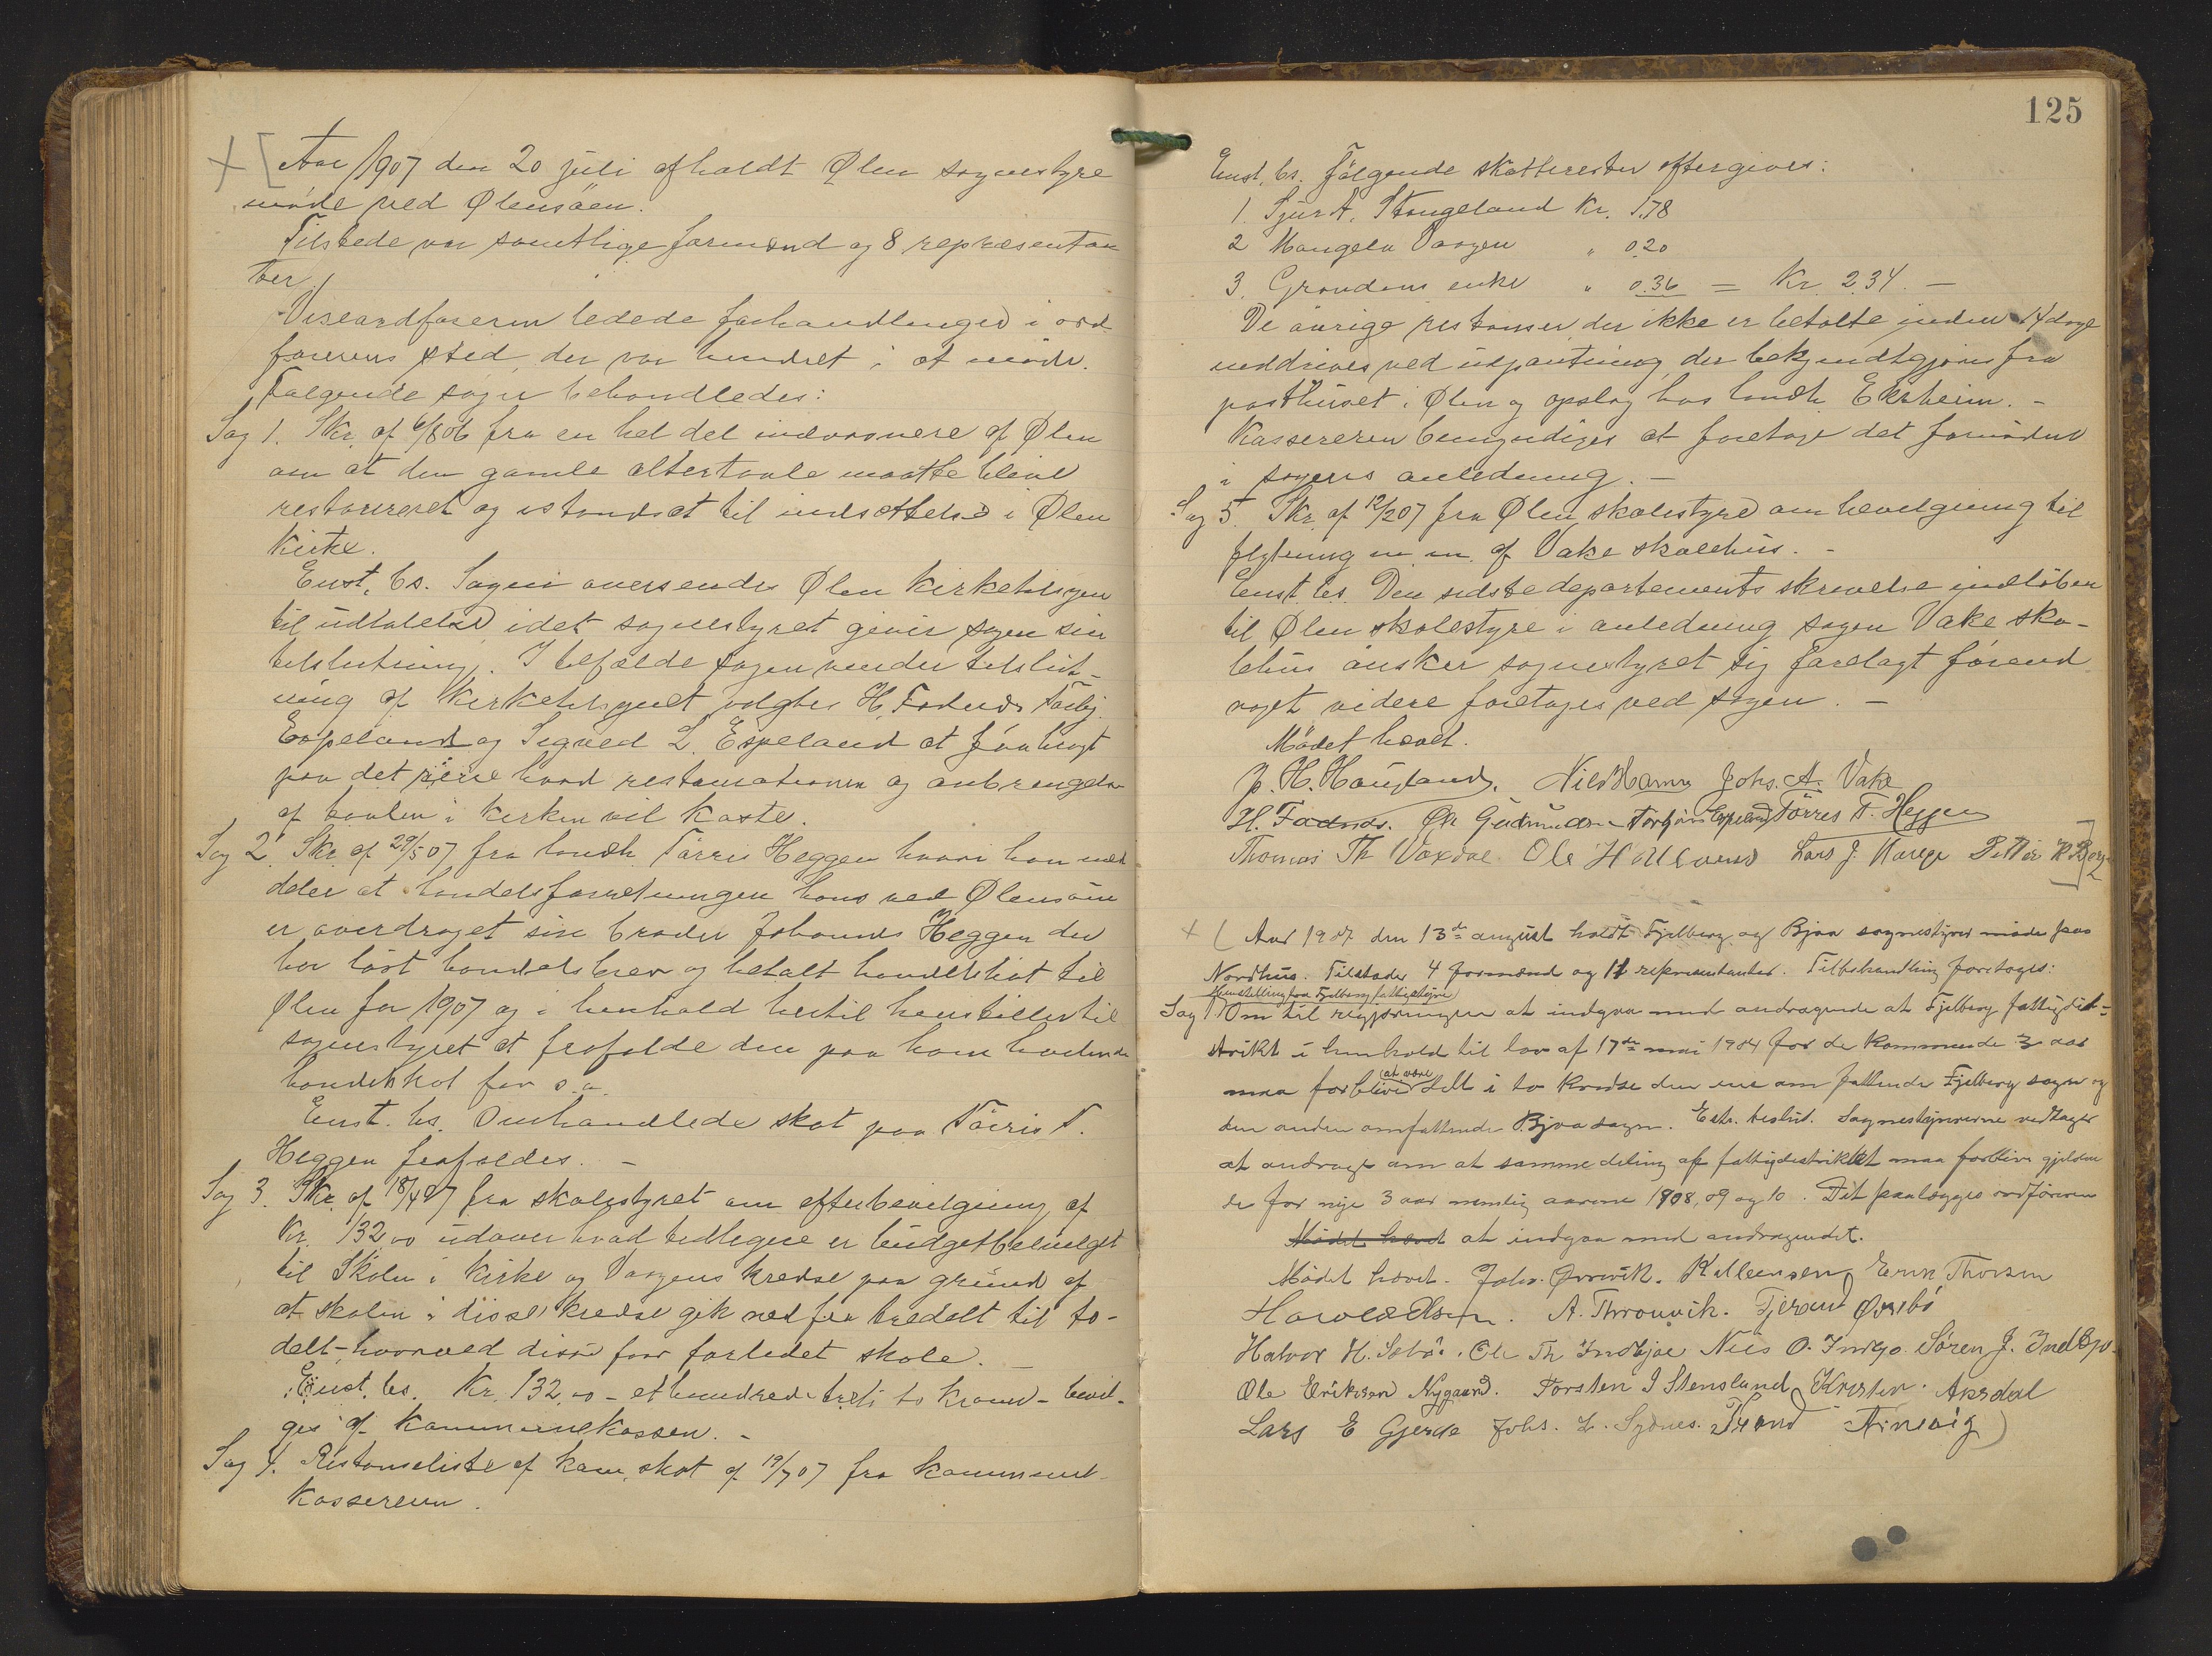 Aar 1907 den 20 juli afholdt Ølen sognestyre
møde ved Ølensöen.
Tilstede var samtlige formænd og 8 repræsentan
ter.
Viseordføreren ledede forhandlingen i ord
førerens sted, der var hindret i at møde.
Følgende sager behandledes:
Sag 1. Skr. af 6/8 06 fra en hel del indvaanere af Ølen
om at den gamle altertavle maatte blive
restaureret og istandsat til indsættelse i Ølen
Kirke.
Enst. bs. Sagen oversendes Ølen Kirketilsyn
til udtalelse idet sognestyret giver sagen sin
tilslutning. I tilfælde sagen vinder tilslut-
ning af Kirketilsynet valgtes H. Fadnes, Torbj.
Espeland og Sigved L. Espeland at faa bragt
paa det rene hvad restaurationen og anbringelse
af tavlen i kirken vil koste.
Sag 2. Skr. af 29/5 07 fra landh. Tørris Heggen hvori han med
deler at handelsforretningen hans ved Ølensöen
er overdraget sin broder Johannes Heggen der
har löst handelsbrev og betalt handelskat til
Ølen for 1907 og i henhold hertil henstiller til
sognestyret at frafalde den paa ham hvilende
handelskat for s. a.
Enst. bs. Omhandlede skat paa Törris T.
Heggen frafaldes. –
Sag 3. Skr. af 18/4 07 fra skolestyret om efterbevilgning af
Kr. 132,00 udover hvad tidligere er budgetbevilget
til Skolen i Kirke og Vaagens kredse paa grund af
at skolen i disse kredse gik ned fra tredelt til to-
delt, hvorved disse faar forledet skole. –
Enst. bs. Kr. 132,00 – et hundrede treti to kroner – bevil-
ges af Kommunekassen. –
Sag 4. Restanseliste af kom. skat af 19/7 07 fra kommune
Kassereren.
125
Enst. bs. Følgende skatterester eftergives:
1. Sjur A. Stangeland Kr. 1.78
2 Mangela Vaagen " 0.20
3. Grøndens enke " 0.36 = Kr. 2.34. –
De øvrige restanser der ikke er betalte inden 14 dage
inddrives ved udpantning, der bekjendtgjøres fra
posthuset i Ølen og opslag hos landh. Eikeheim. –
Kassereren bemyndiges at foretage det fornødne
i sagens anledning. –
Sag 5. Skr. af 12/2 07 fra Ølen skolestyre om bevilgning til
flytning m. m. af Vake skolehus. –
Enst. bs. Den sidste departements skrivelse indløben
til Ølen skolestyre i anledning sagen Vake sko-
lehus ønsker sognestyret sig forelagt førend
noget videre foretages ved sagen. –
Mødet hævet.
P. H. Haugland. Nils Hamre Johs. A. Vake
H. Fadnes. Ole Gudmundsen Torbjørn Espeland Törres T. Heggen
Thomas Th Vaxdal Ole H Hallevend Lars J. Hauge Petter K Berge
Aar 1907 den 13de august holdt Fjelberg og Bjoa sognestyrer møde paa
Nordhus. Tilstede 4 formænd og 11 repræsentanter. Til behandling foretoges:
Henstilling fra Fjelberg fattigstyre
Sag 1) Om til regjeringen at indgaa med andragende at Fjelberg fattigdist-
strikt i henhold til lov af 17de mai 1904 for de kommende 3 aar
maa forblive at være delt i to kredse den ene omfattende Fjelberg sogn og
den anden omfattende Bjoa sogn. Enst. beslut. Sognestyrerne vedtager
at andrage om at samme deling af fattigdistriktet maa forblive gjelden
de for nye 3 aar nemlig aarene 1908, 09 og 10. Det paalægges ordføreren
Mødet hævet at indgaa med andragendet.
Mødet hævet. Johs. Ørrevik. K Alleensen Erik Thorsen
Harald Olsen. A. Thronvik. Tjerand Øvrebö
Halvor H. Sebö. Ole Th Indbjoe Nils O. Indbjo. Søren J. Indbjo
Ole Eriksen Nygaard. Torsten I Stensland Kristen Aksdal
Lars E Gjerde Johs. L. Sydnes. Thrond Arnevig